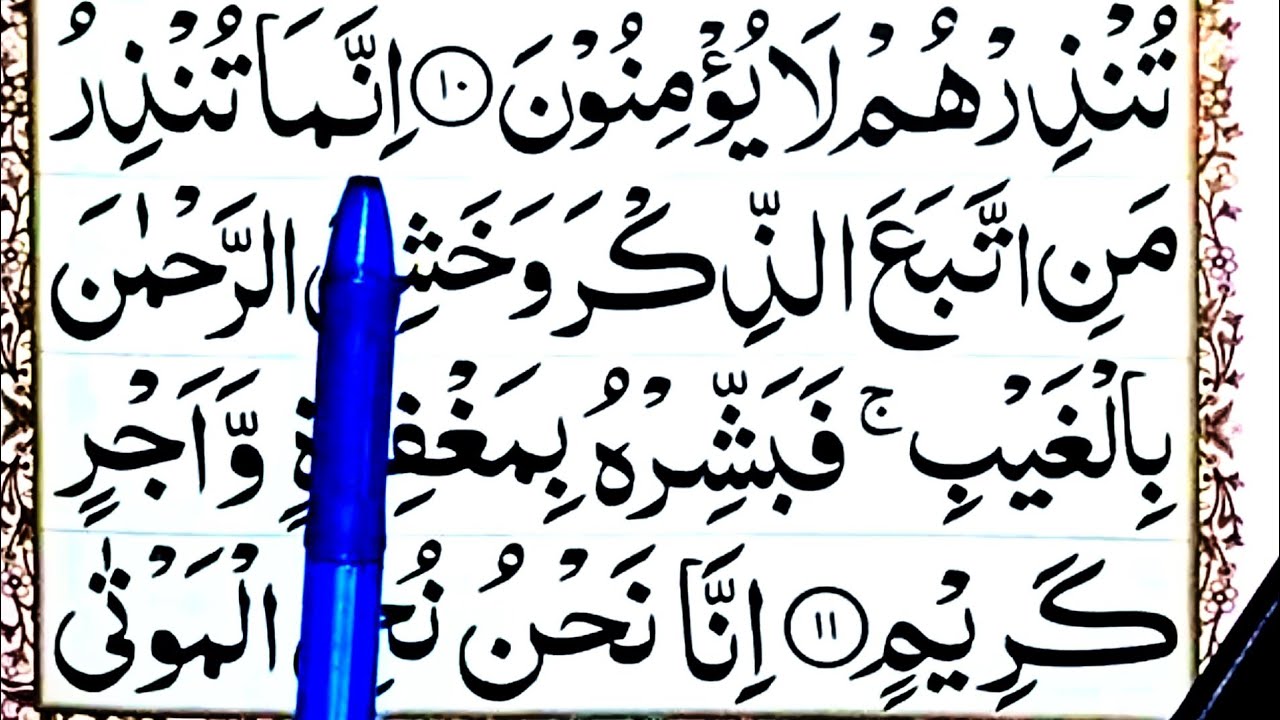 تُنْذِرْهُمْ لَا يُؤْمِنُوْنَ ۝۱۰ اِنَّمَا تُنْذِرُ
مَنِ اتَّبَعَ الذِّكْرَ وَخَشِيَ الرَّحْمٰنَ
بِالْغَيْبِ ۚ فَبَشِّرْهُ بِمَغْفِرَةٍ وَّاَجْرٍ
كَرِيْمٍ ۝۱۱ اِنَّا نَحْنُ الْمَوْتٰى